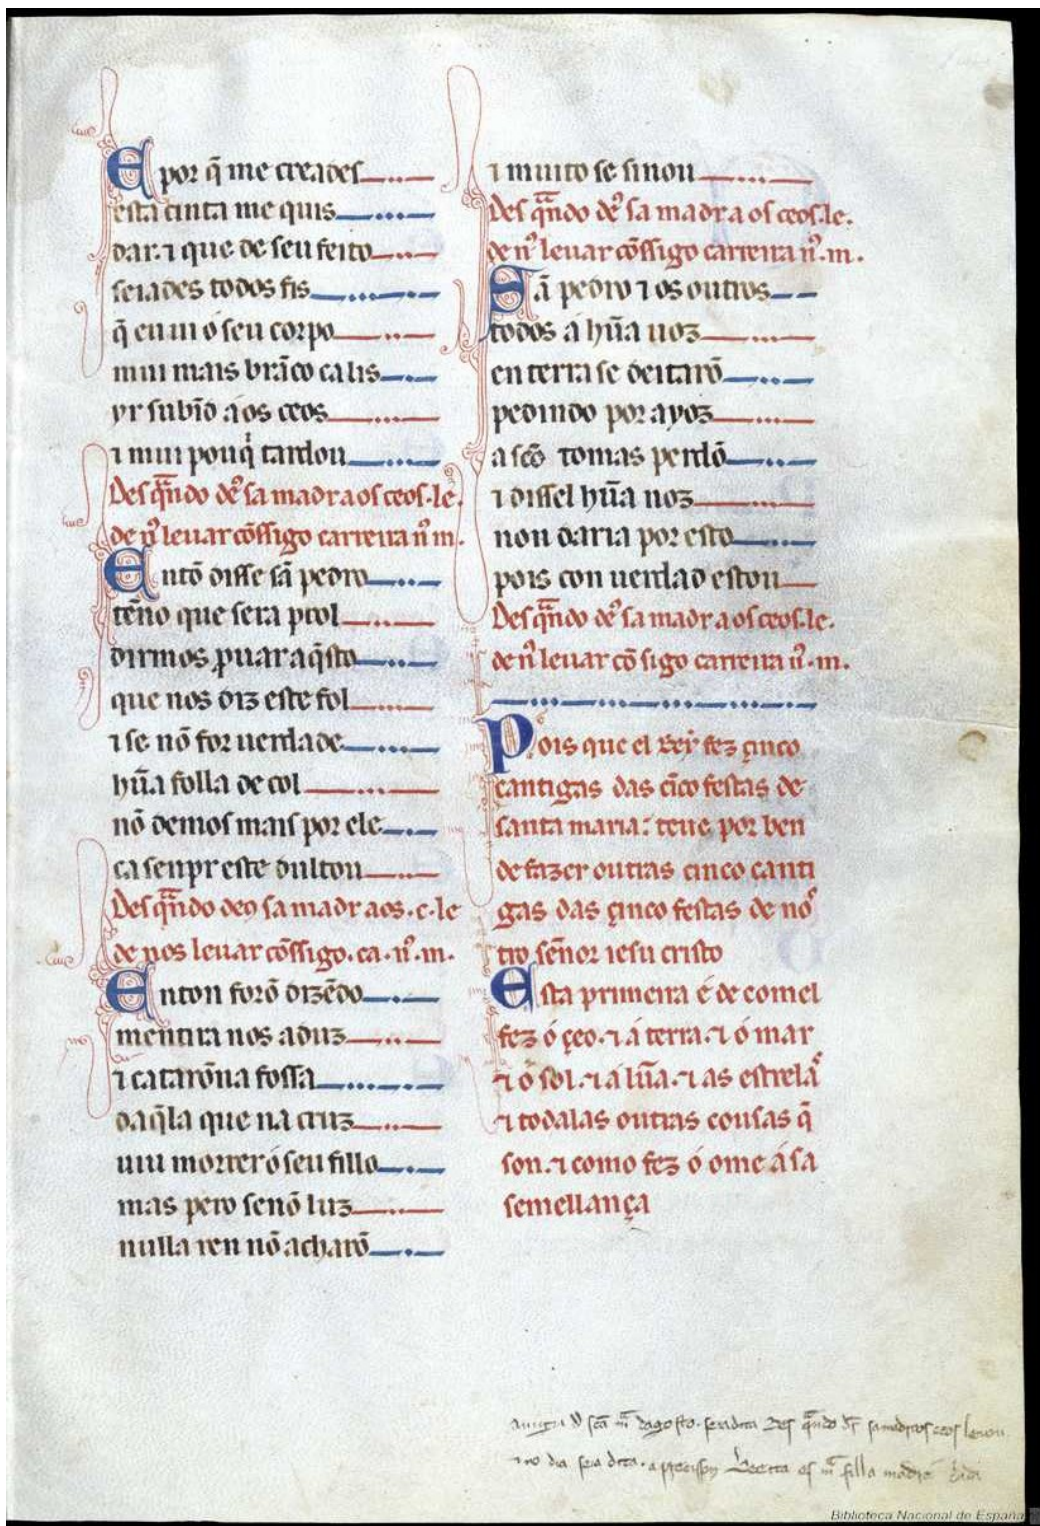 E por q̃ me creades
esta cinta me quis
dar. ⁊ que de seu feito
seiades todos fis
q̃ eu ui ó seu corpo
mui mais brãco ca lis
yr subĩd aos ceos
⁊ mui pouq̃ tardou
Des quãdo de's sa madr aos ceos. le.
de n's leuar cõssigo carreira n's m.
Entõ disse sã pedro
tẽno que sera prol
dirmos ꝓuar aq̃sto
que nos diz este fol
⁊ se nõ for uerdade
hũa folla de col
nõ demos mais por ele
ca senpr este dultou
Des quãdo deus sa madr aos. c. le
de nos leuar cõssigo. ca. n's. m.
Enton forõ dizẽdo
mentira nos aduz
⁊ catarõ na fossa
daq̃la que na cruz
uiu morrer ó seu fillo
mas pero senõ luz
nulla ren nõ acharõ
⁊ muito se sinou
Des quãdo de's sa madr aos ceos. le.
de n's leuar cõssigo carreira n's. m.
Sã pedro ⁊ os outros
todos á hũa uoz
en terra se deitarõ
pedindo por ayoz
a scõ tomas perdõ
⁊ dissel hũa noz
non daria por esto
pois con uerdad estou
Des quãdo de's sa madr aos ceos. le.
de n's leuar cõ sigo carreira n's. m.
Pois que el Rey fez çinco
cantigas das cĩco festas de
santa maria: teue por ben
de fazer outras cinco canti
gas das çinco festas de no's
tro señor iesu cristo
Esta primeira é de comel
fez ó çeo. ⁊ á terra. ⁊ ó mar
⁊ ó sol. ⁊ á lũa. ⁊ as estrelas
⁊ todalas outras cousas q̃
son. ⁊ como fez ó ome á sa
semellança
scã mª dagosto. sera dita Des quãdo ds sa madre aos ceos leuou
⁊ no dia sera dita. a precisson Beeita es mª filla madre
Biblioteca Nacional de España